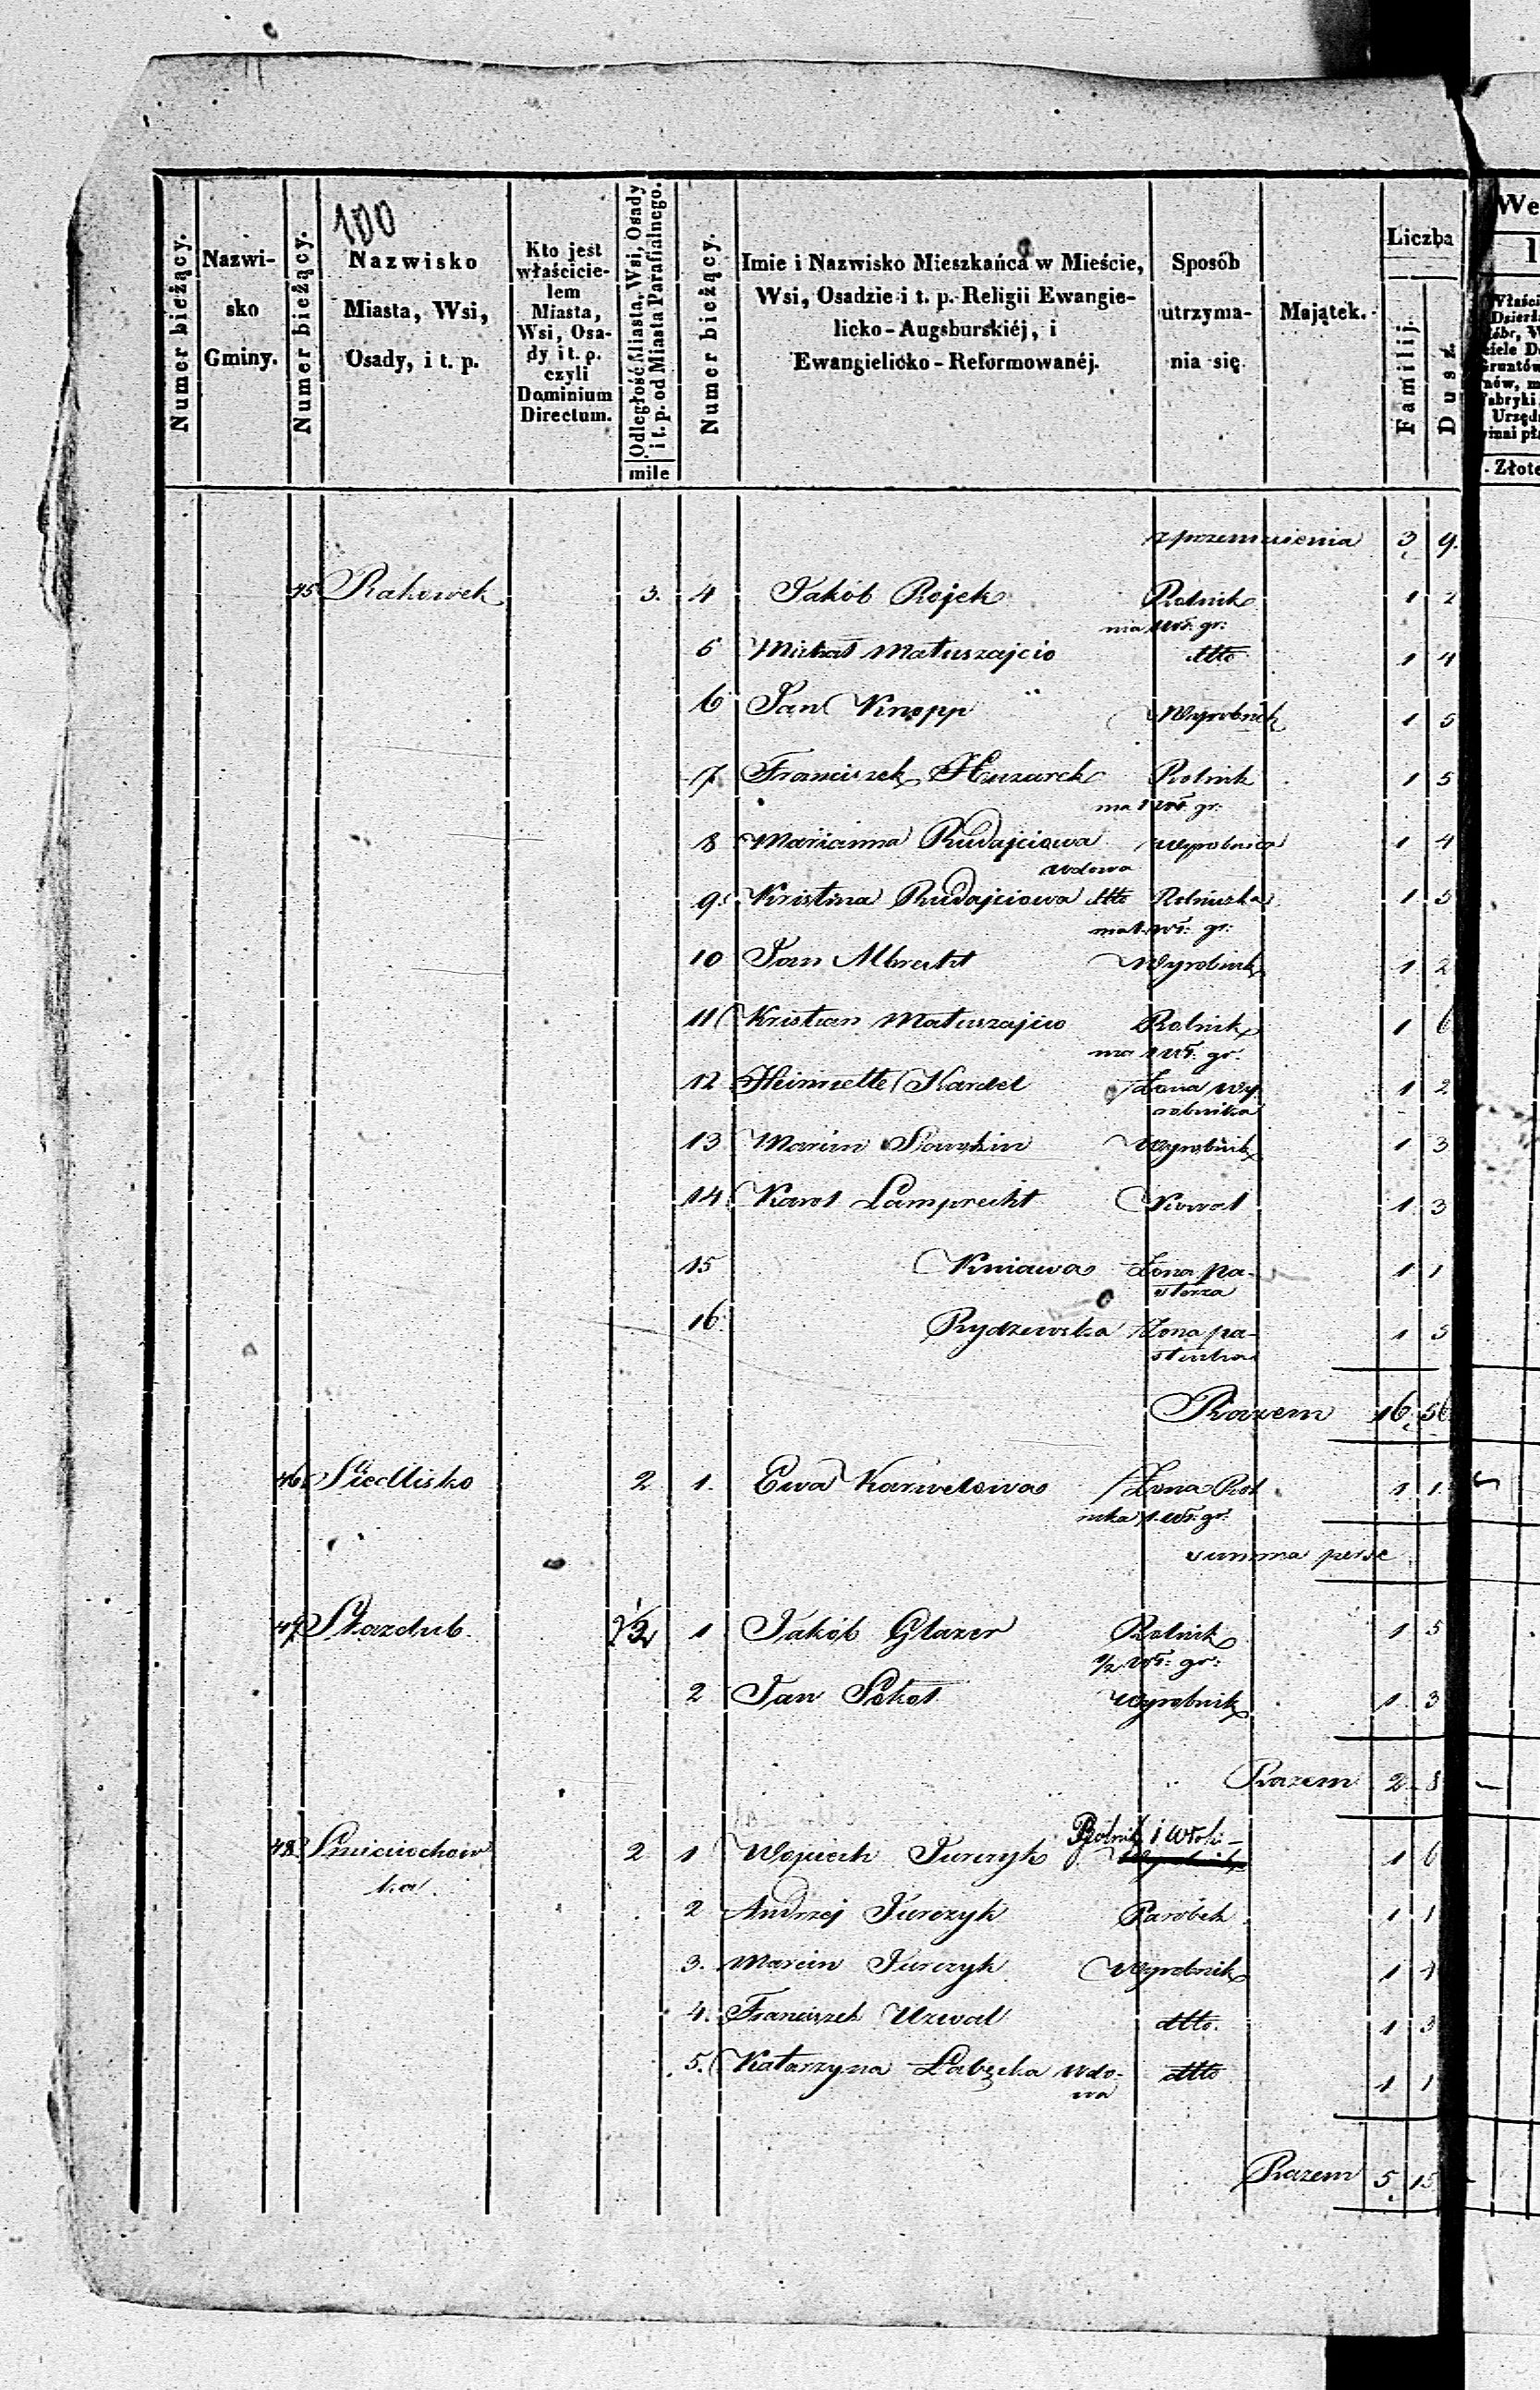 100
Numer bieżący.
Nazwi-
sko
Gminy.
Numer bieżący.
Nazwisko
Miasta, Wsi,
Osady, i t. p.
Kto jest
właścicie-
lem
Miasta,
Wsi, Osa-
dy i t. p.
czyli
Dominium
Directum.
Odległość Miasta, Wsi, Osady
i t. p. od Miasta Parafialnego.
mile
Numer bieżący.
Imie i Nazwisko Mieszkańca w Mieście,
Wsi, Osadzie i t. p. Religii Ewangie-
licko-Augsburskiéj, i
Ewangielicko-Reformowanéj.
Sposób
utrzyma-
nia się.
Majątek.
Liczba
Familij.
Dusz.
z przeniesienia 3 9.
45 Rakowek 3. 4 Jakób Rojek Rolnik 1 2
ma wł. gr:
5 Michał Matuszajcio dtto 1 4
6 Jan Knopp Wyrobnik 1 5
7 Franciszek Huzarek Rolnik 1 5
ma 1 wł. gr:
8 Marianna Rudajciowa Wyrobnica 1 4
wdowa
9. Kristina Rudajciowa dtto Rolniczka 1 5
ma 1. wł: gr:
10 Jan Albrecht Wyrobnik 1 2
11 Kristian Matuszajcio Rolnik 1 6
ma 1 wł. gr.
12 Heinriette Kardel Żona wy
robnika 1 2
13 Marcin Sawkin Wyrobnik 1 3
14 Karol Lamprecht Kowal 1 3
15 Kniawa Żona pa-
sterza 1 1
16. Rydzewska Żona pa-
stucha 1 5
Razem 16 56
46 Siedlisko 2 1. Ewa Karwelowa Żona Rol 1 1
nika 1. wł. gr.
summa per se
47 Stazdub 2½ 1 Jakób Glazer Rolnik 1 5
½ wł: gr:
2 Jan Sokol Wyrobnik 1 3
Razem 2 8
48. 2 1 Wojciech Jurczyk Rolnik 1 6
2 Andrzej Jurczyk Parobek 1 1
3. Marcin Jurczyk Wyrobnik 1 4
4. Franciszek Uzwal dtto. 1 3
5. Katarzyna Labęcka Wdo-
wa dtto 1 1
Razem 5 15